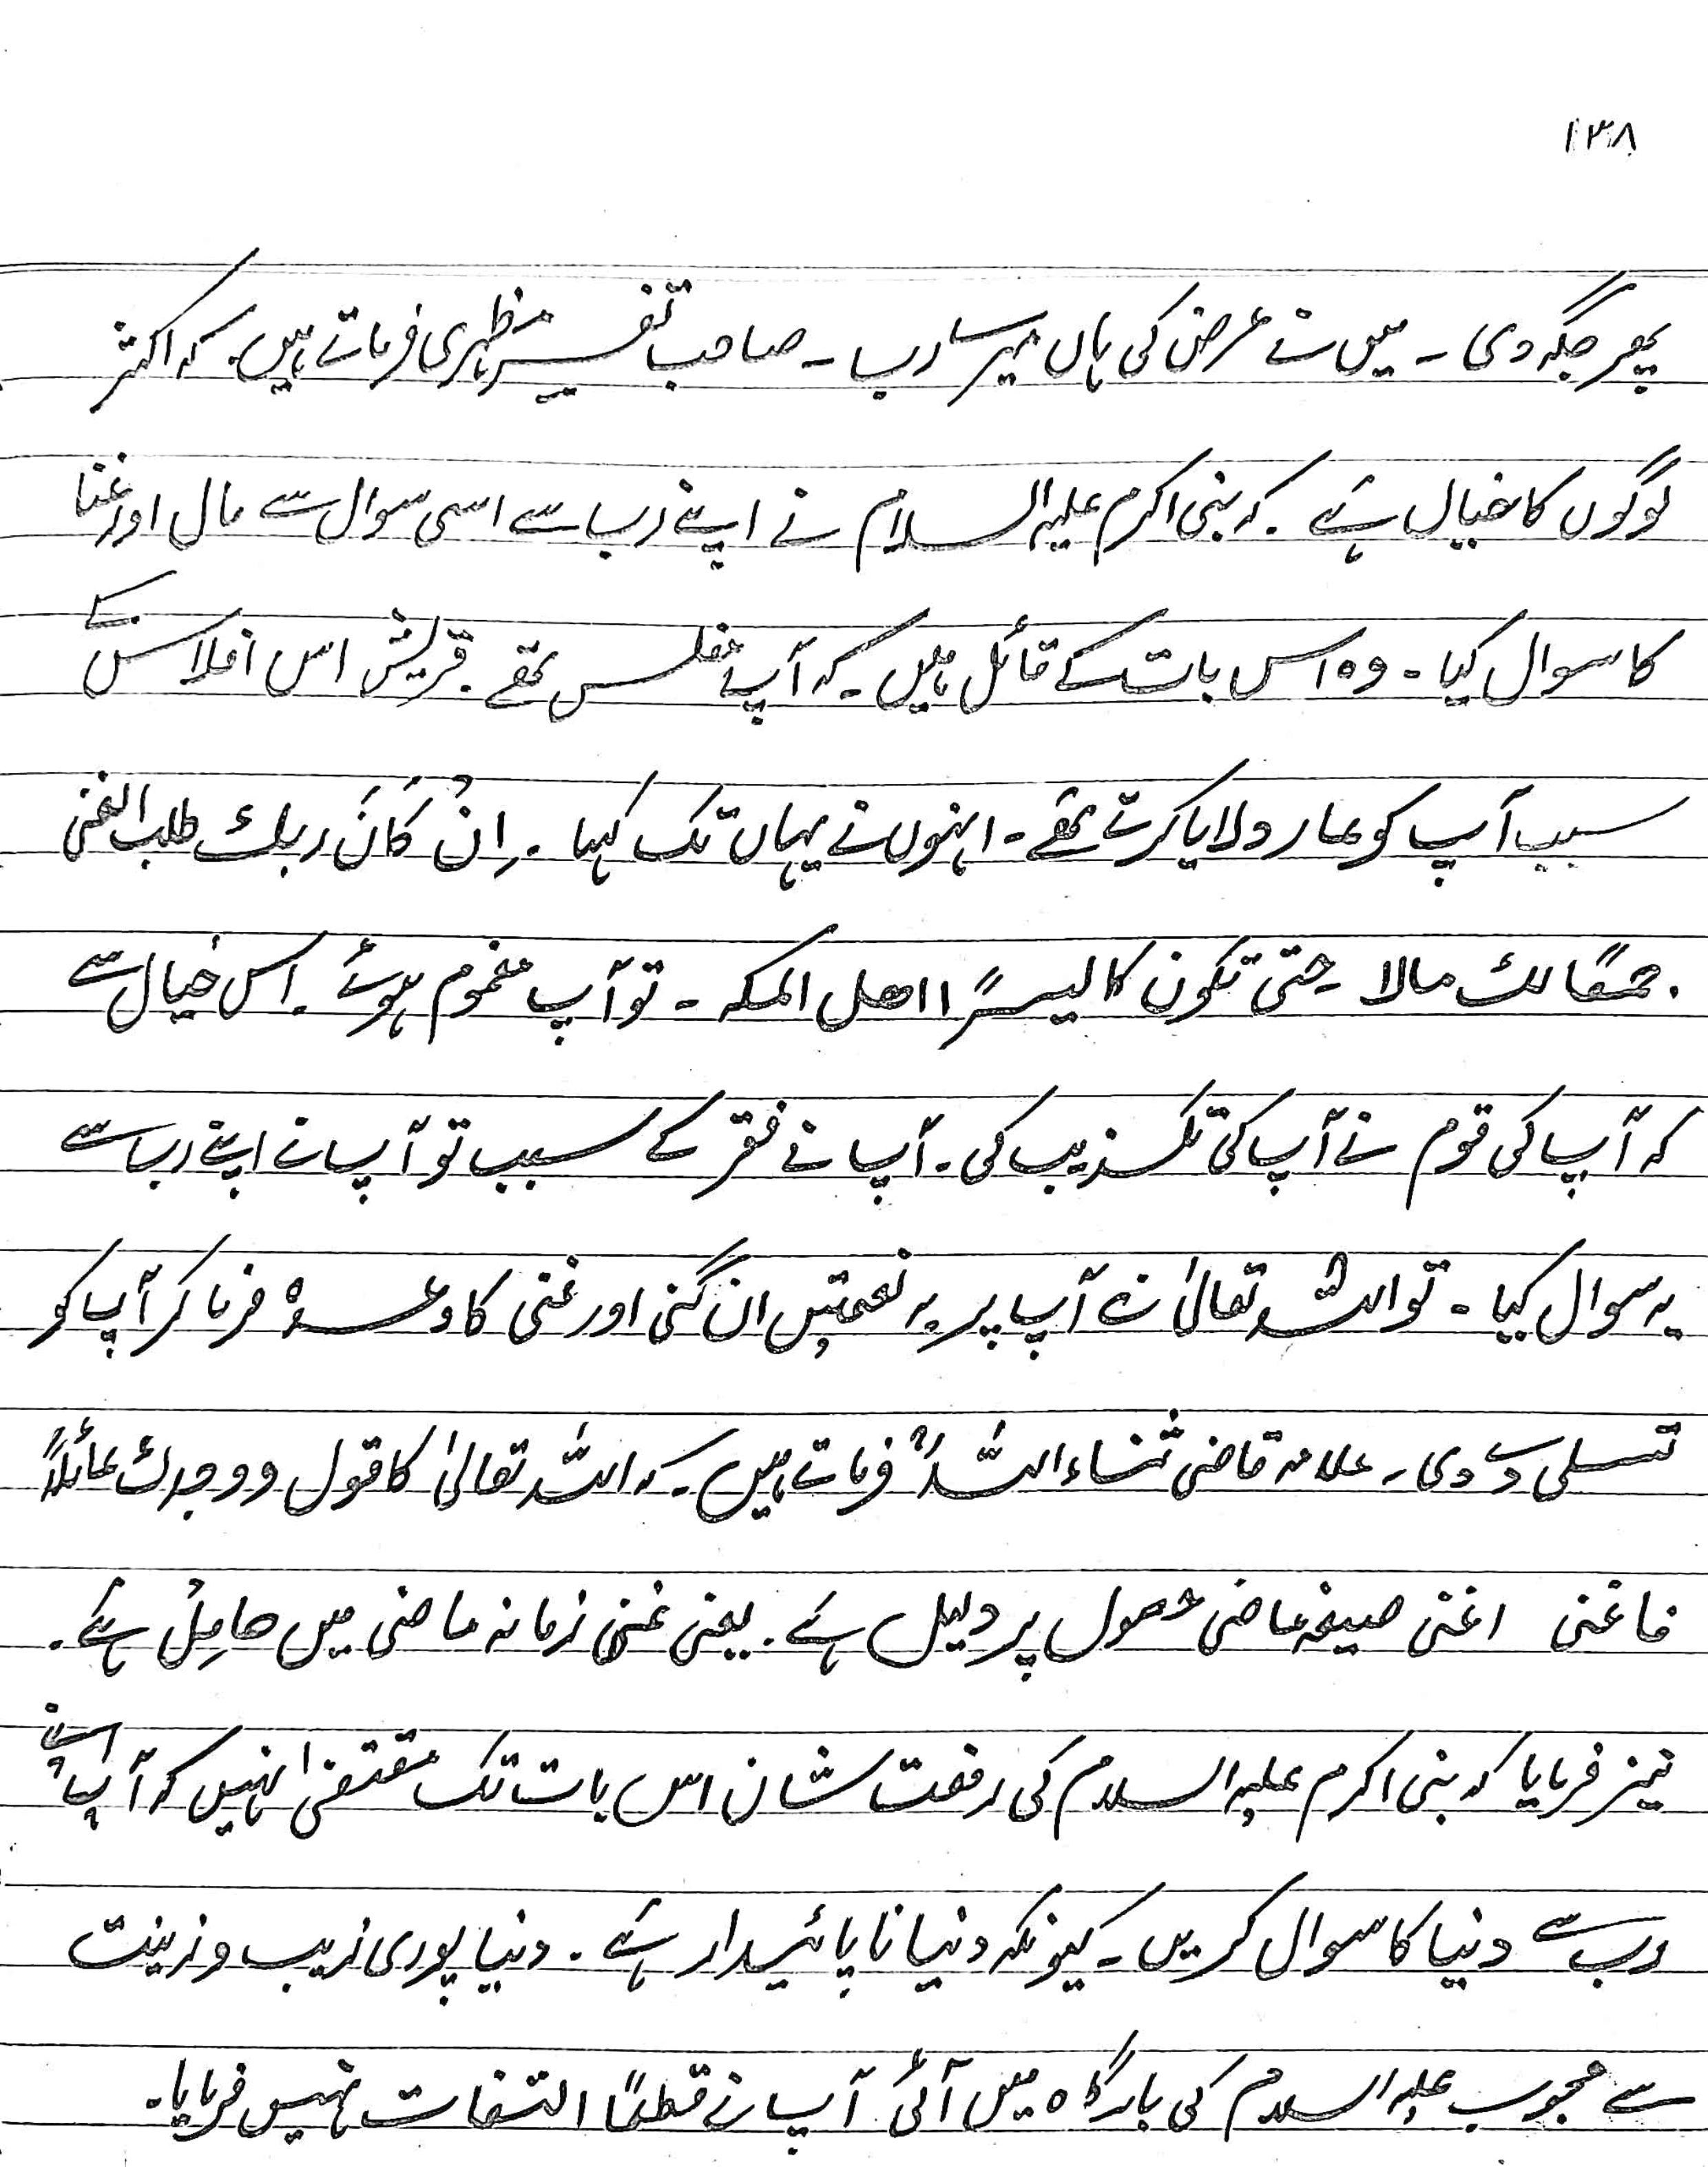 ۱۳۸
پھر جگہ دی ۔ میں نے عرض کی ہاں میرے رب ۔ صاحب تفسیر مظہری فرماتے ہیں ۔ کہ اکثر
لوگوں کا خیال ہے ۔ کہ نبی اکرم علیہ السلام نے اپنے رب سے اسی سوال سے مال اور غنا
کا سوال کیا ۔ وہ اس بات کے قائل ہیں ۔ کہ آپ مفلس تھے ۔ قریش اس افلاس کے
سبب آپ کو عار دلایا کرتے تھے ۔ انہوں نے یہاں تک کہا ۔ اِنْ کَانَ ربك طلب الغنی
۔ جمعًا لك مالا ۔ حتی تکون کا لیسرًا اھل المکہ ۔ تو آپ مغموم ہوئے ۔ اس خیال سے
کہ آپ کی قوم نے آپ کی تکذیب کی ۔ آپ نے فقر کے سبب تو آپ نے اپنے رب سے
یہ سوال کیا ۔ تو اللہ تعالیٰ نے آپ پر یہ نعمتیں ان گنی اور غنی کا وعدہ فرما کر آپ کو
تسلی دے دی ۔ علامہ قاضی ثناء اللہؒ فرماتے ہیں ۔ کہ اللہ تعالیٰ کا قول ووجدك عائلاً
فاغنی اغنی صیغہ ماضی حصول پر دلیل ہے ۔ یعنی غنی زمانہ ماضی میں حاصل ہے ۔
نیز فرمایا کہ نبی اکرم علیہ السلام کی رفعت شان اس بات تک مقتضی نہیں کہ آپ اپنے
رب سے دنیا کا سوال کریں ۔ کیونکہ دنیا ناپائیدار ہے ۔ دنیا پوری زیب و زینت
سے محبوب علیہ السلام کی بارگاہ میں آئی آپ نے قطعاً التفات نہیں فرمایا ۔